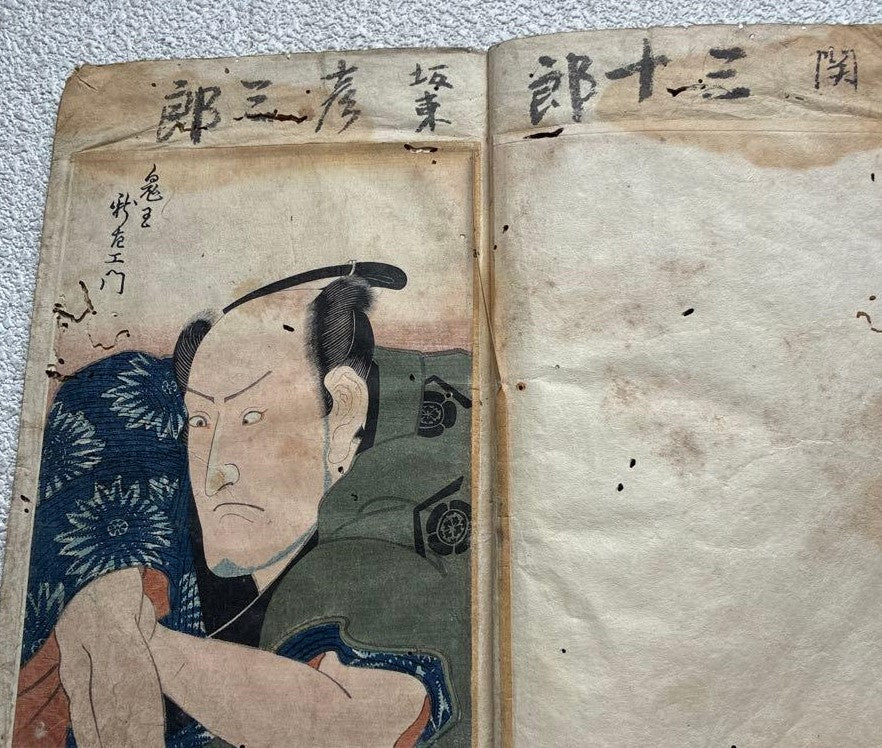 関三十郎
坂東彦三郎
鬼王
新左エ門